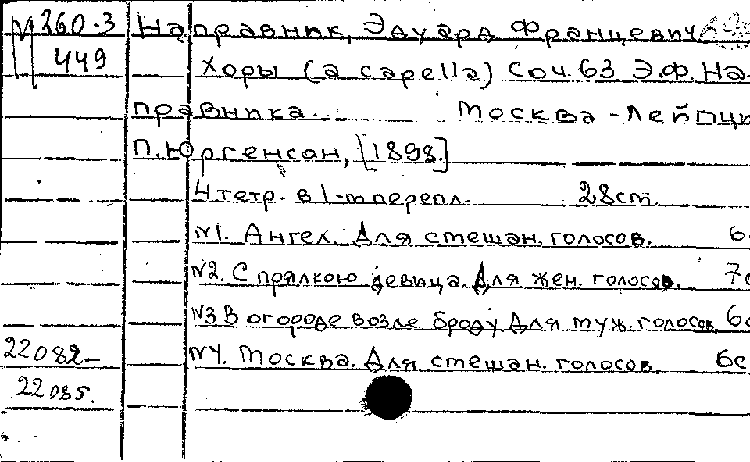 М 260.3
449
Направник, Эдуард Францевич
Хоры (a capella) Соч. 63 Э.Ф. На-
правника. Москва - Лейпци
П. Юргенсон, [1898.]
4 тетр. в 1-m перепл. 28cm.
N1. Ангел. Для смешан. голосов. 6с
N2. С прялкою девица. Для жен. голосов. 7с
N3 В огороде возле броду Для муж. голосов 6с
N4. Москва. Для смешан. голосов. 6с
22082-
22085.